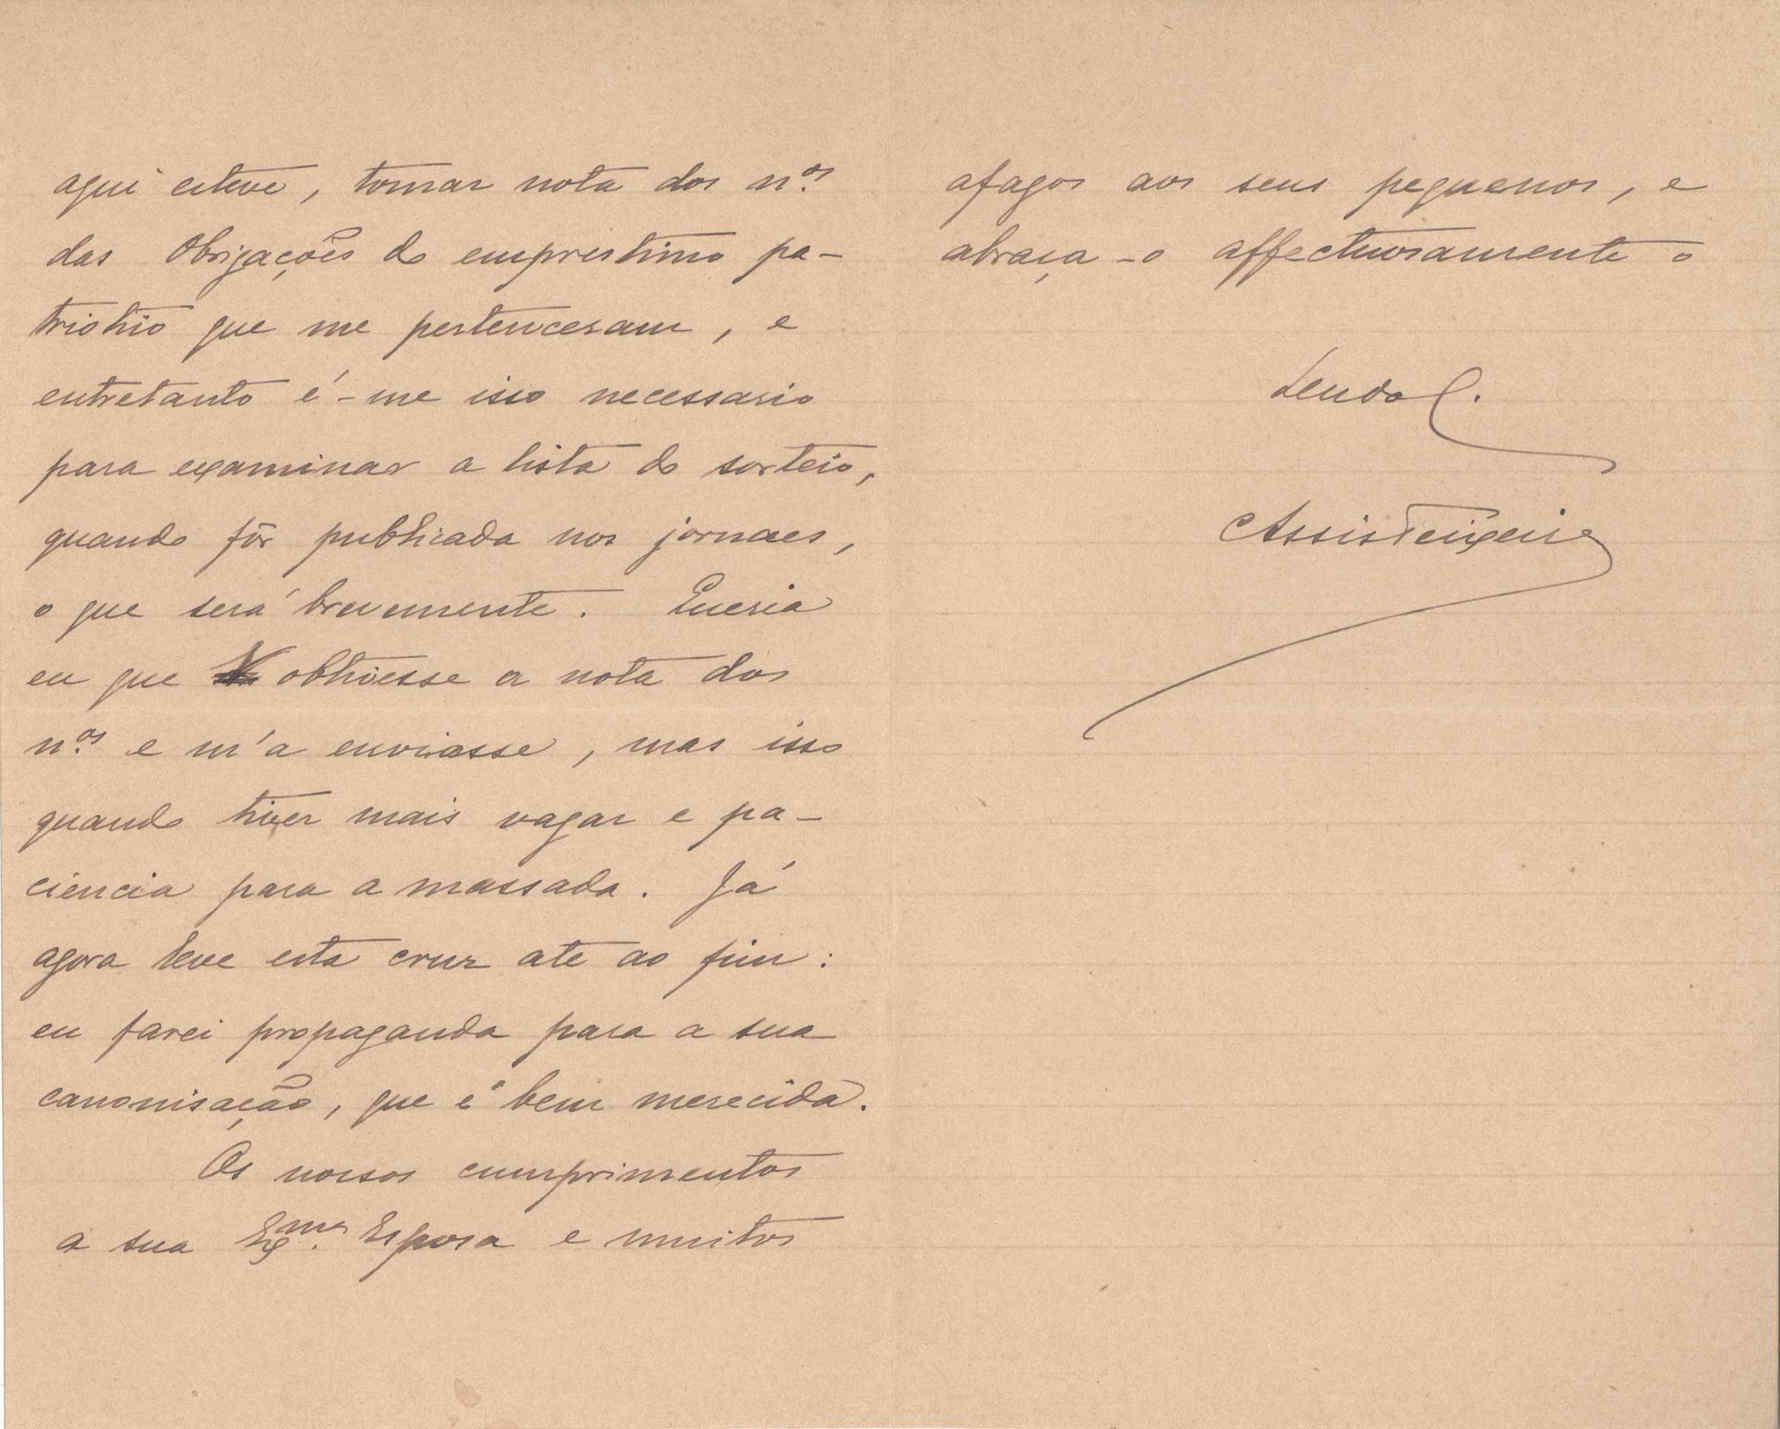 aqui esteve, tomar nota dos n.os
das Obrigações do emprestimo pa-
triotico que me pertenceram, e
entretanto é-me isso necessario
para examinar a lista do sorteio,
quando fôr publicada nos jornaes,
o que será brevemente. Queria
eu que obtivesse a nota dos
n.os e m'a enviasse, mas isso
quando tiver mais vagar e pa-
ciencia para a massada. Já
agora leve esta cruz ate ao fim:
eu farei propaganda para a sua
canonisação, que é bem merecida.
Os nossos cumprimentos
a sua Exma. Esposa e muitos
afagos aos seus pequenos, e
abraça-o affectuosamente o
Assis Teixeira